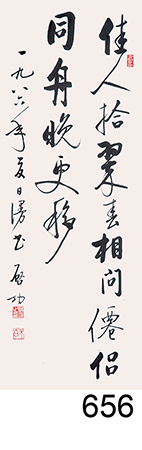 佳人拾翠春相问僊侣
同舟晚更移
一九八六年夏日漫书 启功
656